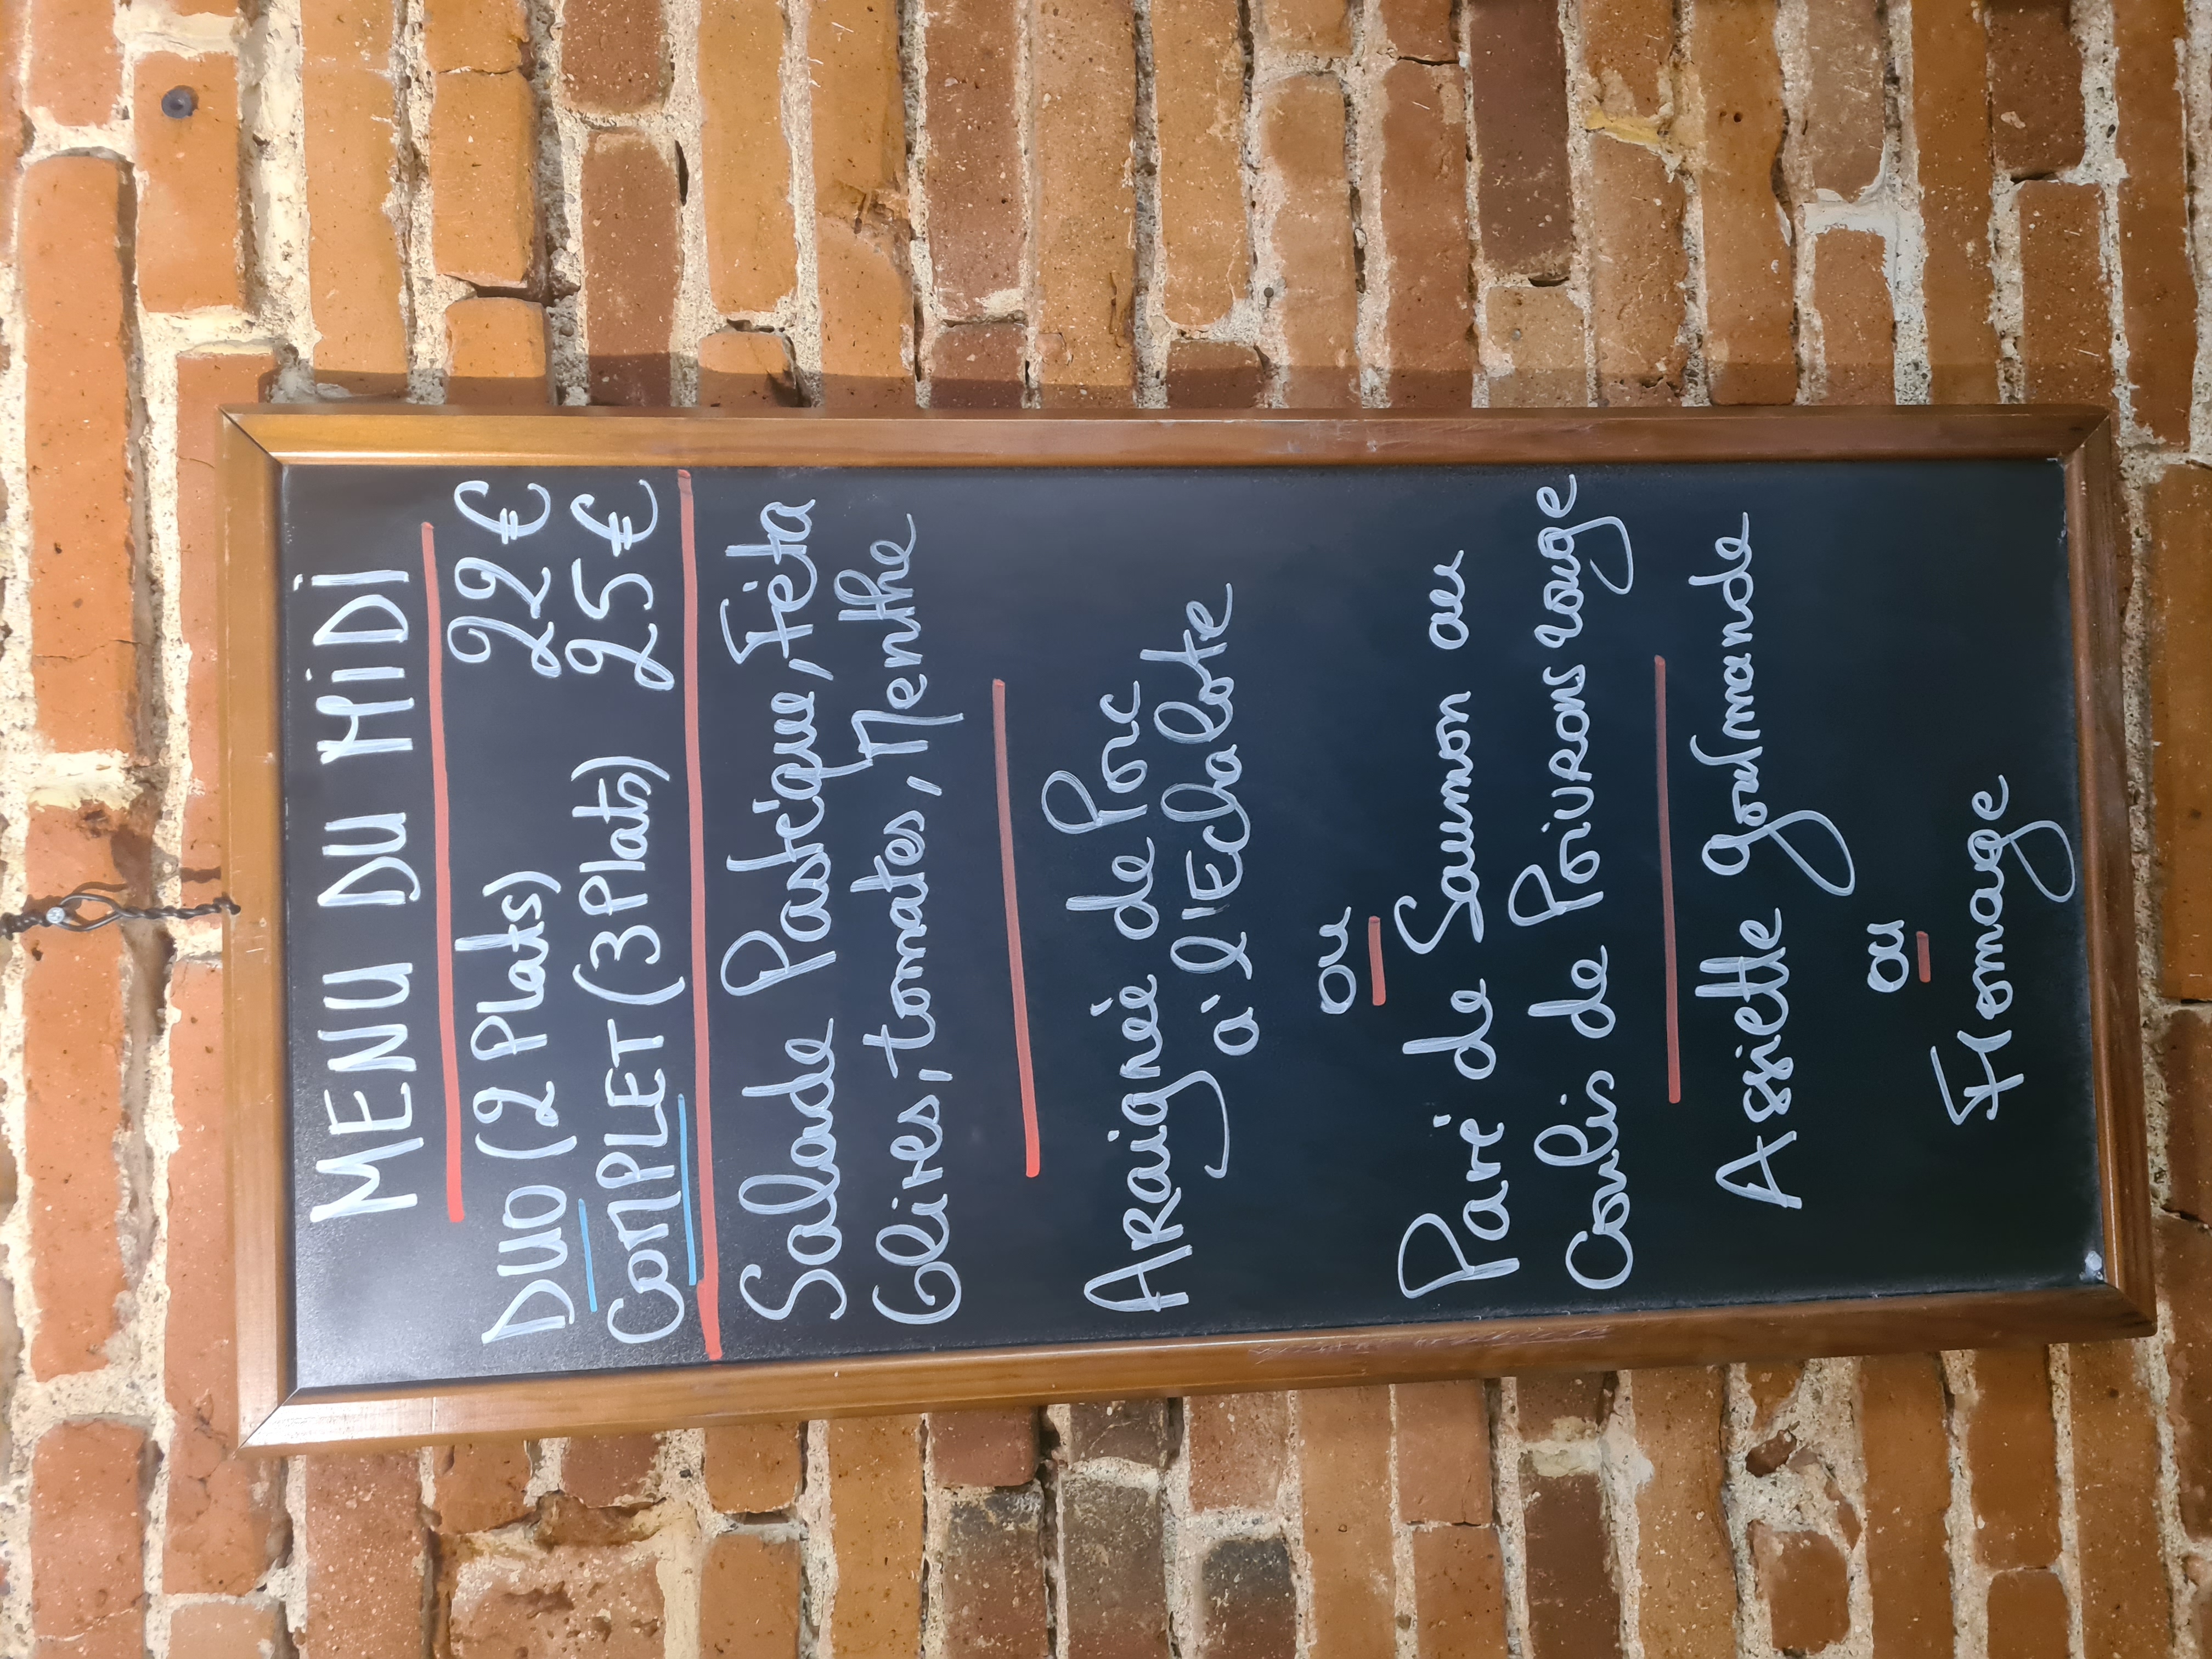 MENU DU MIDI
DUO (2 Plats) 22€
COMPLET (3 Plats) 25€
Salade Pastèque, Féta
Olives, tomates, Menthe
ARaignée de Porc
à l'Echalote
ou
Pavé de Saumon au
Coulis de Poivrons rouge
Assiette gourmande
ou
Fromage